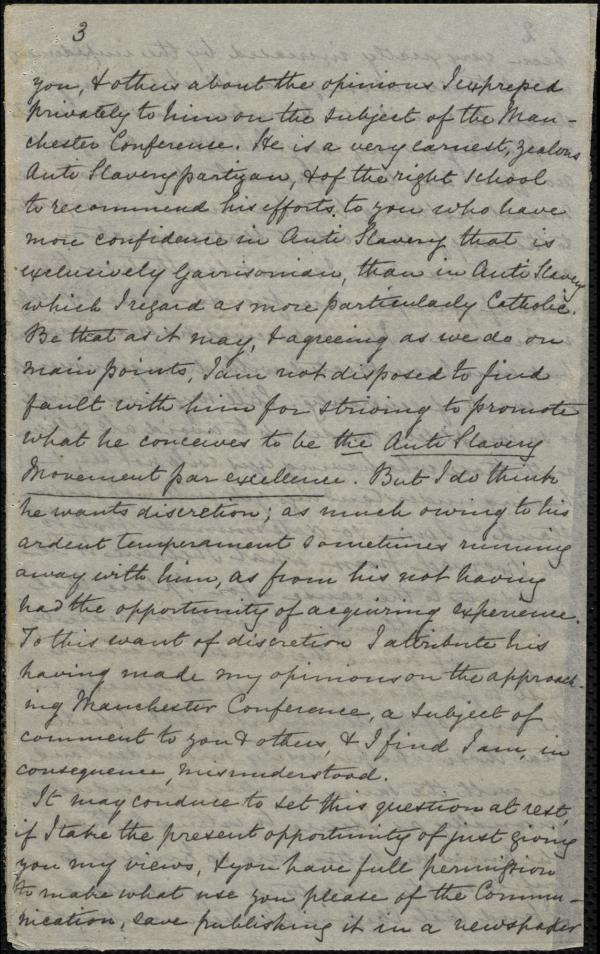 3
you, & others about the opinions I expressed
privately to him on the subject of the Man-
chester Conference. He is a very earnest, zealous
Anti Slavery partizan, & of the right school
to recommend his efforts, to you who have
more confidence in Anti Slavery that is
exclusively Garrisonian, than in Anti Slavery
which I regard as more particularly Catholic.
Be that as it may, & agreeing as we do on
main points, I am not disposed to find
fault with him for striving to promote
what he conceives to be the Anti Slavery
Movement par excellence. But I do think
he wants discretion; as much owing to his
ardent temperament sometimes running
away with him, as from his not having
had the opportunity of acquiring experience.
To this want of discretion I attribute his
having made my opinions on the approach-
ing Manchester Conference, a subject of
comment to you & others, & I find I am, in
consequence, misunderstood.
It may conduce to set this question at rest,
if I take the present opportunity of just giving
you my views, & you have full permission
to make what use you please of the Commu-
nication, save publishing it in a newspaper